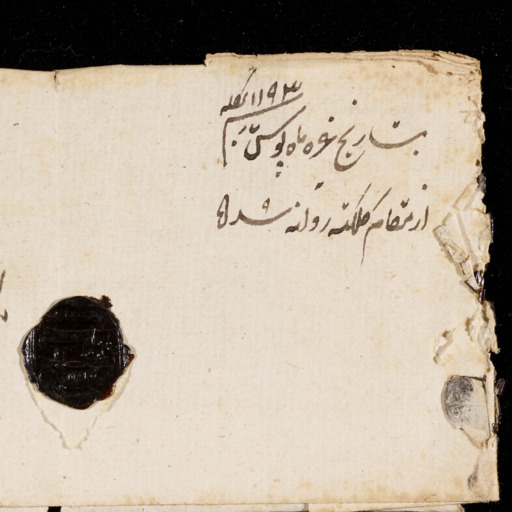 بتاریخ غره ماه پوس سنه ۱۱۹۳ بنگله
از مقام کلکته روانه شد